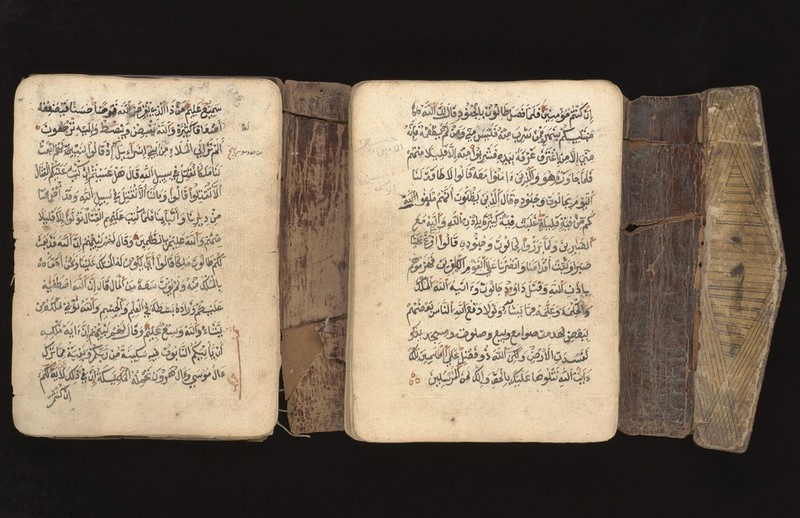 سميع عليم من ذا الذي يقرض الله قرضا حسنا فيضعفه
أضعافا كثيرة والله يقبض ويبصط وإليه ترجعون
ألم تر إلى الملإ من بني إسراءيل إذ قالوا لنبيء لهم ابعث
من بعد موسى
لنا ملكا نقتل في سبيل الله قال هل عسيتم إن كتب عليكم القتال
ألا تقتلوا قالوا وما لنا ألا نقتل في سبيل الله وقد أخرجنا
من ديرنا وأبنائنا فلما كتب عليهم القتال تولوا إلا قليلا
منهم والله عليم بالظلمين وقال لهم نبيئهم إن الله قد بعث
لكم طالوت ملكا قالوا أنى يكون له الملك علينا ونحن أحق
بالملك منه ولم يوت سعة من المال قال إن الله اصطفيه
عليكم وزاده بسطة في العلم والجسم والله يؤتي ملكه من
يشاء والله وسع عليم وقال لهم نبيئهم إن ءاية ملكه
أن ياتيكم التابوت فيه سكينة من ربكم وبقية مما ترك
ءال موسى وءال هرون تحمله الملئكة إن في ذلك لآية لكم
إن كنتم
إن كنتم مؤمنين فلما فصل طالوت بالجنود قال إن الله
مبتليكم بنهر فمن شرب منه فليس مني ومن لم يطعمه فإنه
مني إلا من اغترف غرفة بيده فشربوا منه إلا قليلا منهم
فلما جاوزه هو والذين ءامنوا معه قالوا لا طاقة لنا
اليوم بجالوت وجنوده قال الذين يظنون أنهم ملقوا الله
كم من فئة قليلة غلبت فئة كثيرة بإذن الله والله مع
الصابرين ولما برزوا لجالوت وجنوده قالوا ربنا أفرغ علينا
صبرا وثبت أقدامنا وانصرنا على القوم الكفرين فهزموهم
بإذن الله وقتل داوود جالوت وءاتيه الله الملك
والحكمة وعلمه مما يشاء ولولا دفع الله الناس بعضهم
ببعض
لفسدت الأرض ولكن الله ذو فضل على العلمين تلك
ءايت الله نتلوها عليك بالحق وإنك لمن المرسلين